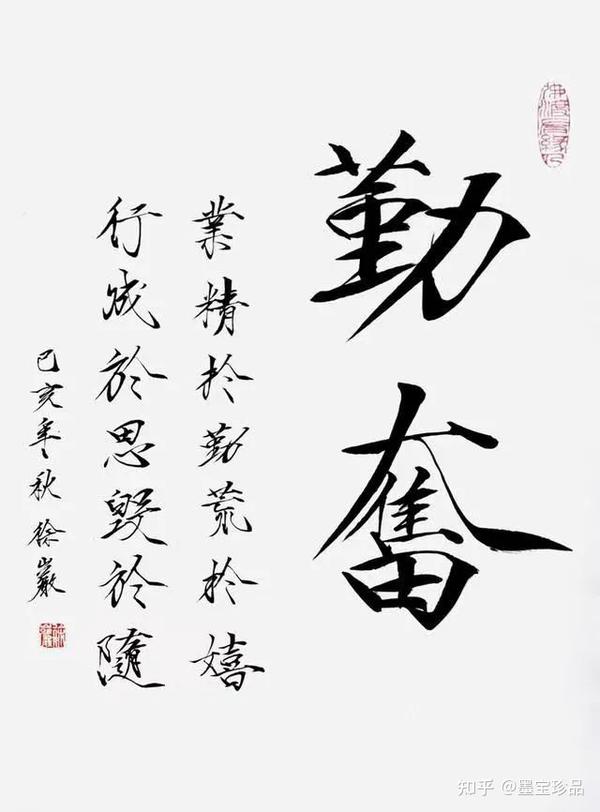 勤奮
業精於勤荒於嬉
行成於思毀於隨
己亥年秋 徐巖
知乎 @墨宝珍品